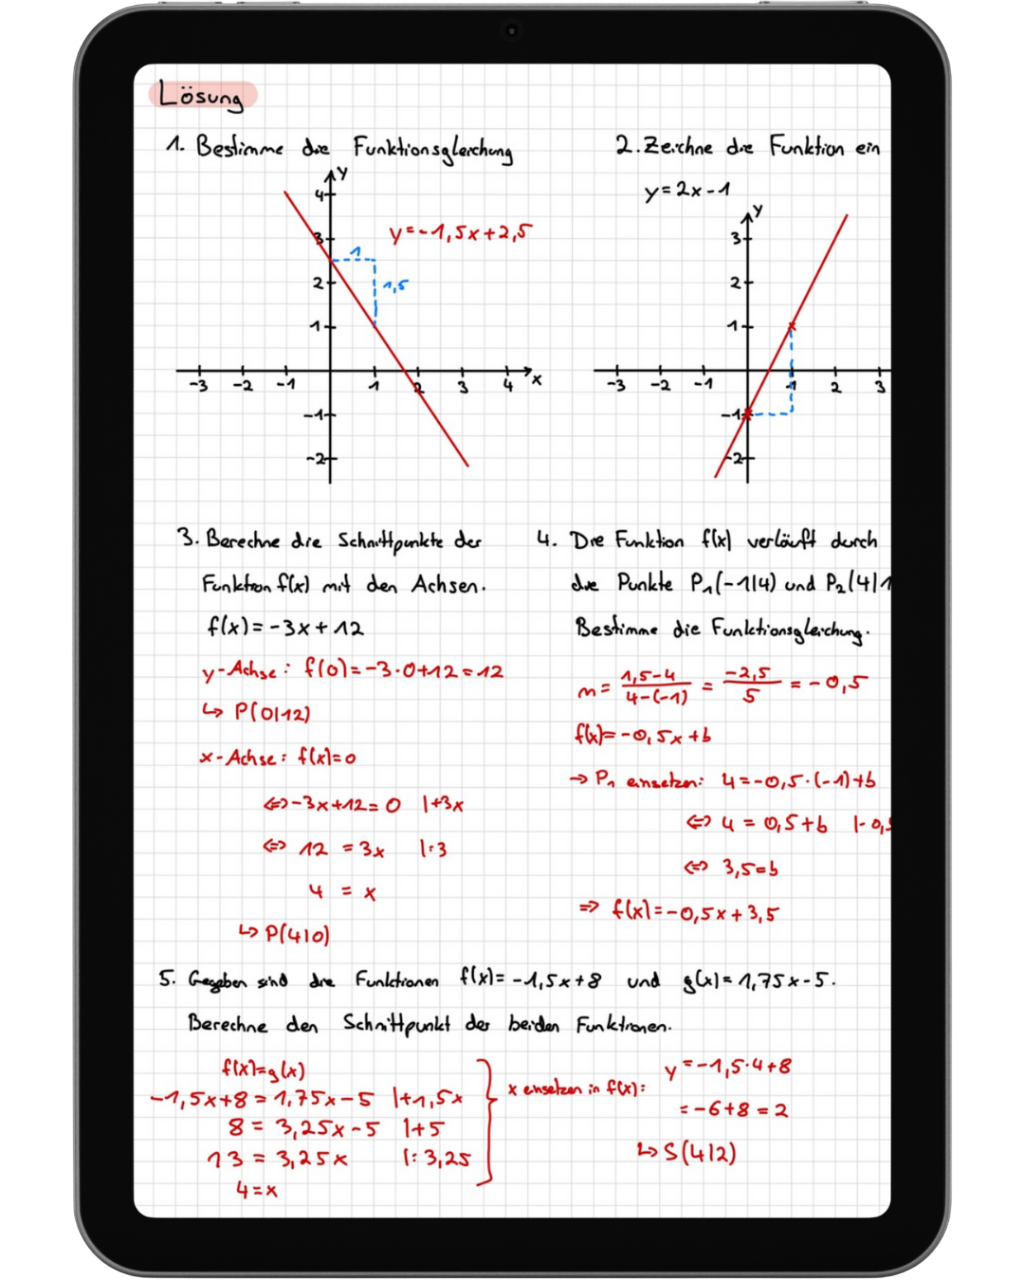 Lösung
1. Bestimme die Funktionsgleichung
y
4
3
2
1
-1
-2
-3 -2 -1 1 2 3 4 x
y=-1,5x+2,5
1
1,5
2. Zeichne die Funktion ein
y=2x-1
y
3
2
1
-1
-2
-3 -2 -1 1 2 3
3. Berechne die Schnittpunkte der
Funktion f(x) mit den Achsen.
f(x)=-3x+12
y-Achse: f(0)=-3·0+12=12
↳ P(0|12)
x-Achse: f(x)=0
⇔ -3x+12=0 |+3x
⇔ 12 = 3x |:3
4 = x
↳ P(4|0)
4. Die Funktion f(x) verläuft durch
die Punkte P₁(-1|4) und P₂(4|1
Bestimme die Funktionsgleichung.
m = 1,5-4 / 4-(-1) = -2,5 / 5 = -0,5
f(x)=-0,5x+b
⇒ P₁ einsetzen: 4=-0,5·(-1)+b
⇔ 4 = 0,5+b |-0,5
⇔ 3,5=b
⇒ f(x)=-0,5x+3,5
5. Gegeben sind die Funktionen f(x)=-1,5x+8 und g(x)=1,75x-5.
Berechne den Schnittpunkt der beiden Funktionen.
f(x)=g(x)
-1,5x+8=1,75x-5 |+1,5x
8 = 3,25x-5 |+5
13 = 3,25x |:3,25
4=x
x einsetzen in f(x):
y=-1,5·4+8
=-6+8=2
↳ S(4|2)